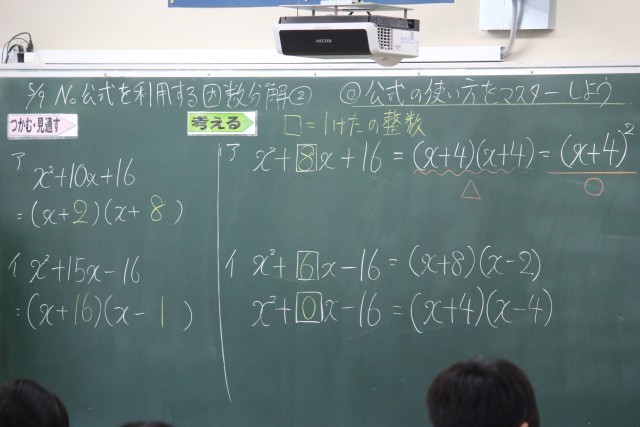 5/9 No 公式を利用する因数分解② @公式の使い方をマスターしよう
つかむ・見通す
ア
x²+10x+16
=(x+2)(x+8)
イ x²+15x-16
=(x+16)(x-1)
考える
□=1けたの整数
ア x²+8x+16=(x+4)(x+4)=(x+4)²
△ ○
イ x²+6x-16=(x+8)(x-2)
x²+0x-16=(x+4)(x-4)